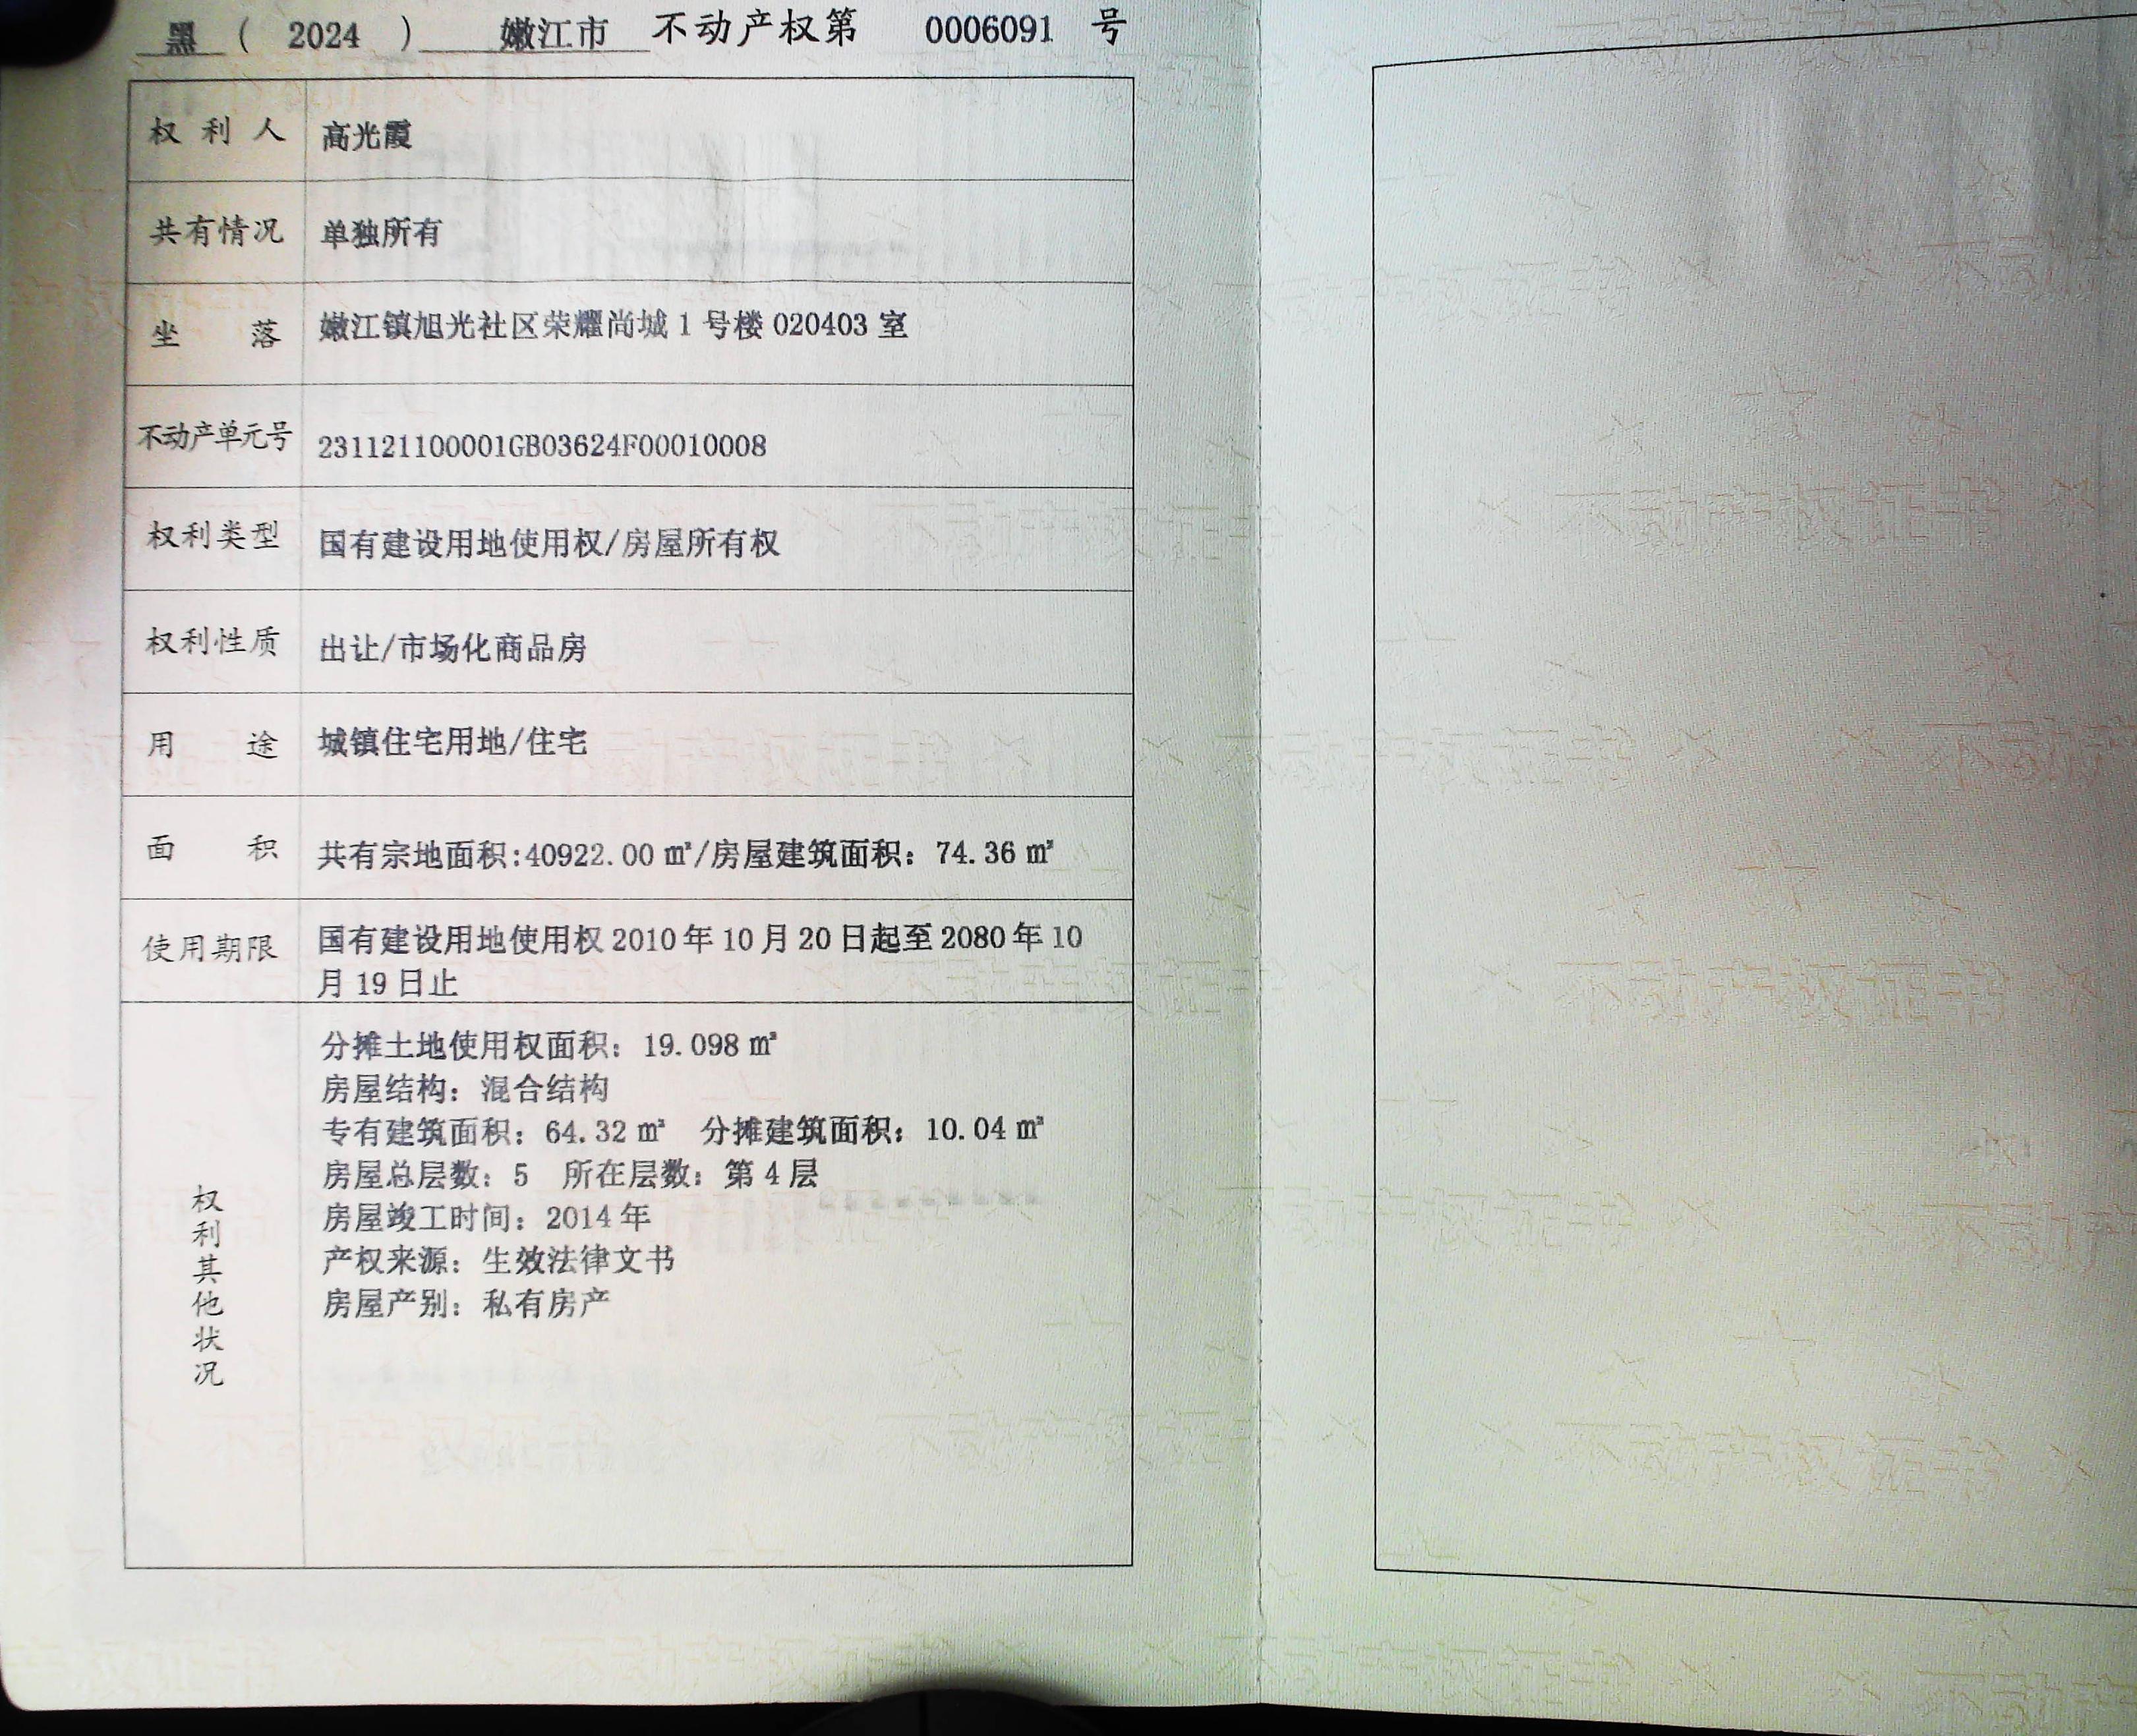 黑 ( 2024 ) 嫩江市 不动产权第 0006091 号
权利人 高光霞
共有情况 单独所有
坐落 嫩江镇旭光社区荣耀尚城 1 号楼 020403 室
不动产单元号 231121100001GB03624F00010008
权利类型 国有建设用地使用权/房屋所有权
权利性质 出让/市场化商品房
用途 城镇住宅用地/住宅
面积 共有宗地面积:40922.00 ㎡/房屋建筑面积：74.36 ㎡
使用期限 国有建设用地使用权 2010 年 10 月 20 日起至 2080 年 10
月 19 日止
权利其他状况
分摊土地使用权面积：19.098 ㎡
房屋结构：混合结构
专有建筑面积：64.32 ㎡ 分摊建筑面积：10.04 ㎡
房屋总层数：5 所在层数：第 4 层
房屋竣工时间：2014 年
产权来源：生效法律文书
房屋产别：私有房产